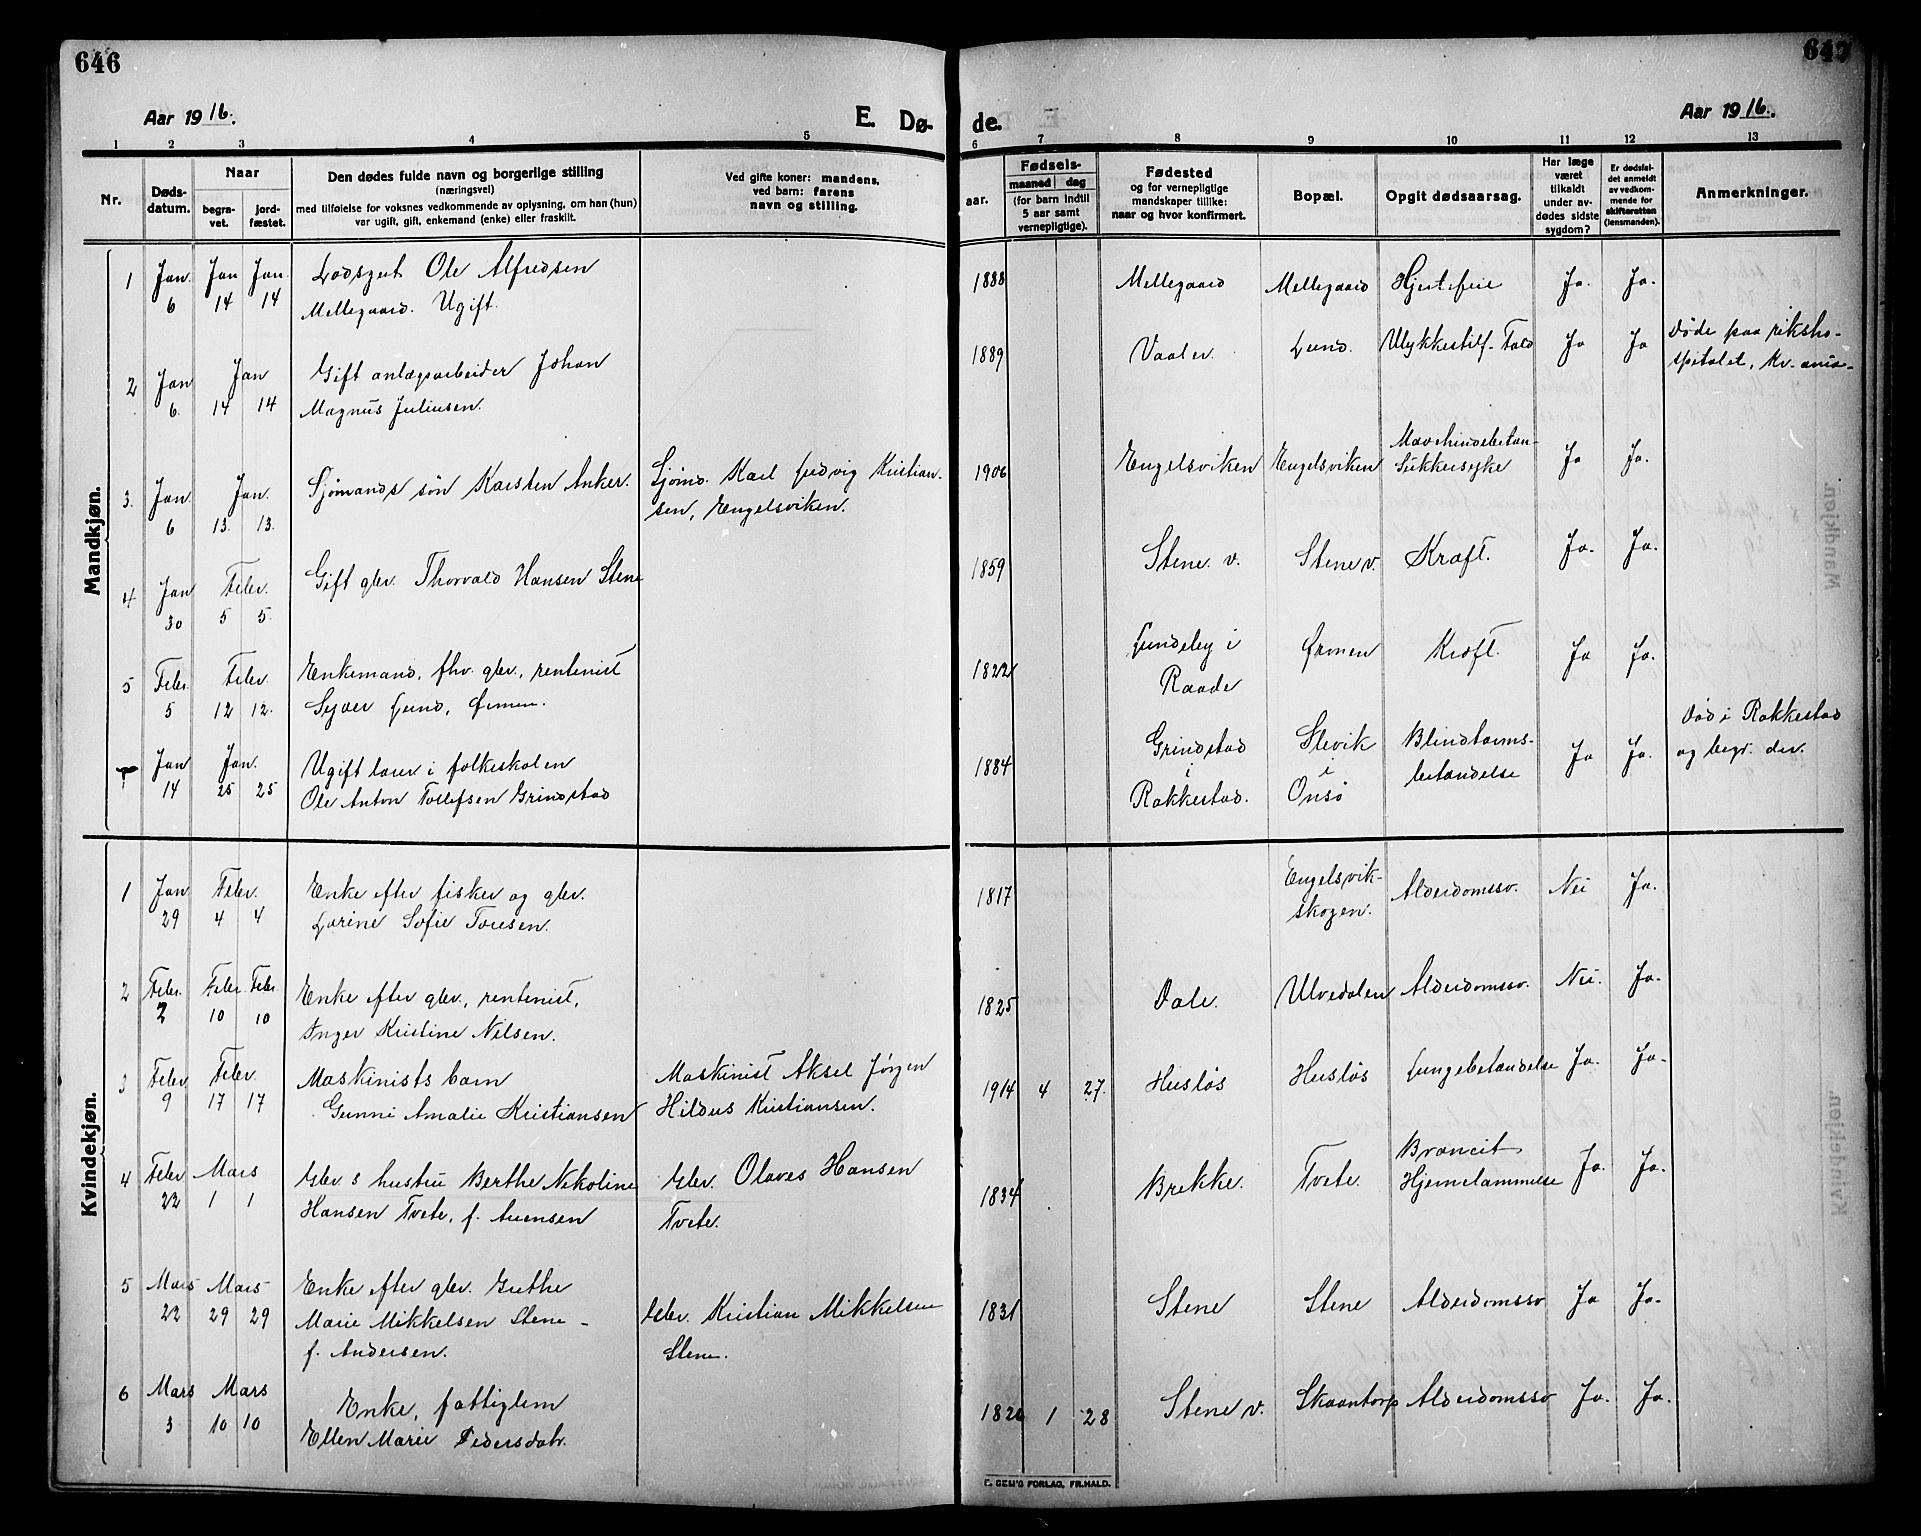 646
647
Aar 1916.
E. Dø-
de.
Aar 1916.
1 2 3 4 5
6 7 8 9 10 11 12 13
Nr.
Døds-
datum.
Naar
begra-
vet.
jord-
fæstet.
Den dødes fulde navn og borgerlige stilling
(næringsvei)
med tilføielse for voksnes vedkommende av oplysning, om han (hun)
var ugift, gift, enkemand (enke) eller fraskilt.
Ved gifte koner: mandens,
ved barn: farens
navn og stilling.
aar.
Fødsels-
maaned dag
(for barn indtil
5 aar samt
vernepligtige).
Fødested
og for vernepligtige
mandskaper tillike:
naar og hvor konfirmert.
Bopæl.
Opgit dødsaarsag.
Har læge
været
tilkaldt
under av-
dødes sidste
sygdom?
Er dødsfal-
det anmeldt
av vedkom-
mende for
skifteretten
(lensmanden).
Anmerkninger.
Mandkjøn.
1 Jan. Jan Jan. Lodsgut Ole Alfredsen
6 14 14 Mellegaard. Ugift.
1888 Mellegaard Mellegaard Hjertefeil Ja. Ja.
2 Jan Jan Gift anlægsarbeider Johan
6. 14 14 Magnus Juliusen.
1889 Vaaler. Lund. Ulykkestilf. Fald Ja Ja Døde paa riksho-
spitalet, Kr.ania.
3. Jan. Jan. Sjømands søn Karsten Anker. Sjømd. Karl Ludvig Kristian-
6 13. 13. sen, Engelsviken.
1906 Engelsviken Engelsviken Ja Ja.
Sukkersyke
4 Jan Febr. Gift gbr. Thorvald Hansen Stene
30 5 5.
1859 Stene v. Stene v. Kræft. Ja. Ja.
5 Febr. Febr. Enkemand, fhv. gbr., rentenist
5 12 12. Lund,
1822 Lundeby i Kræft. Ja Ja.
Raade
Jan Jan. Ugift lærer i folkeskolen
14 25 25 Ole Anton Tollefsen Grindstad
1884 Grindstad Slevik Blindtarms- Ja Ja. Død i Rakkestad
i i betændelse og begr. der.
Rakkestad. Onsø
Kvindekjøn.
1 Jan Febr. Enke efter fisker og gbr.
29 4 4 Lorine Sofie Toresen.
1817 Engelsvik- Alderdomssv. Nei Ja.
skogen.
2 Febr. Febr. Febr. Enke efter gbr., rentenist,
2 10 10 Inger Kristine Nilsen.
1825 Dale. Ulvedalen Alderdomssv. Nei. Ja.
3 Febr. Febr. Maskinists barn Maskinist Aksel Jørgen
9 17 17 Gunni Amalie Kristiansen Hildus Kristiansen.
1914 4 27. Husløs Husløs Lungebetændelse Ja. Ja.
4 Febr Mars Gbr.s hustru Berthe Nikoline Gbr. Olaves Hansen
22 1 1 Hansen Tvete, f. Arensen Tvete.
1834 Brekke. Tvete. Ja. Ja.
Hjernelammelse
5 Mars Mars Enke efter gbr. Grethe
22 29 29 Marie Mikkelsen Stene - Gbr. Kristian Mikkelsen
f. Andersen. Stene.
1831 Stene Stene Alderdomssv Ja Ja.
6 Mars Mars Enke, fattiglem
3 10 10 Ellen Marie Pedersdatr.
1826 1 28 Stene v. Skaantorp Alderdomssv Ja. Ja.
GEM'S FORLAG, FR.HALD.